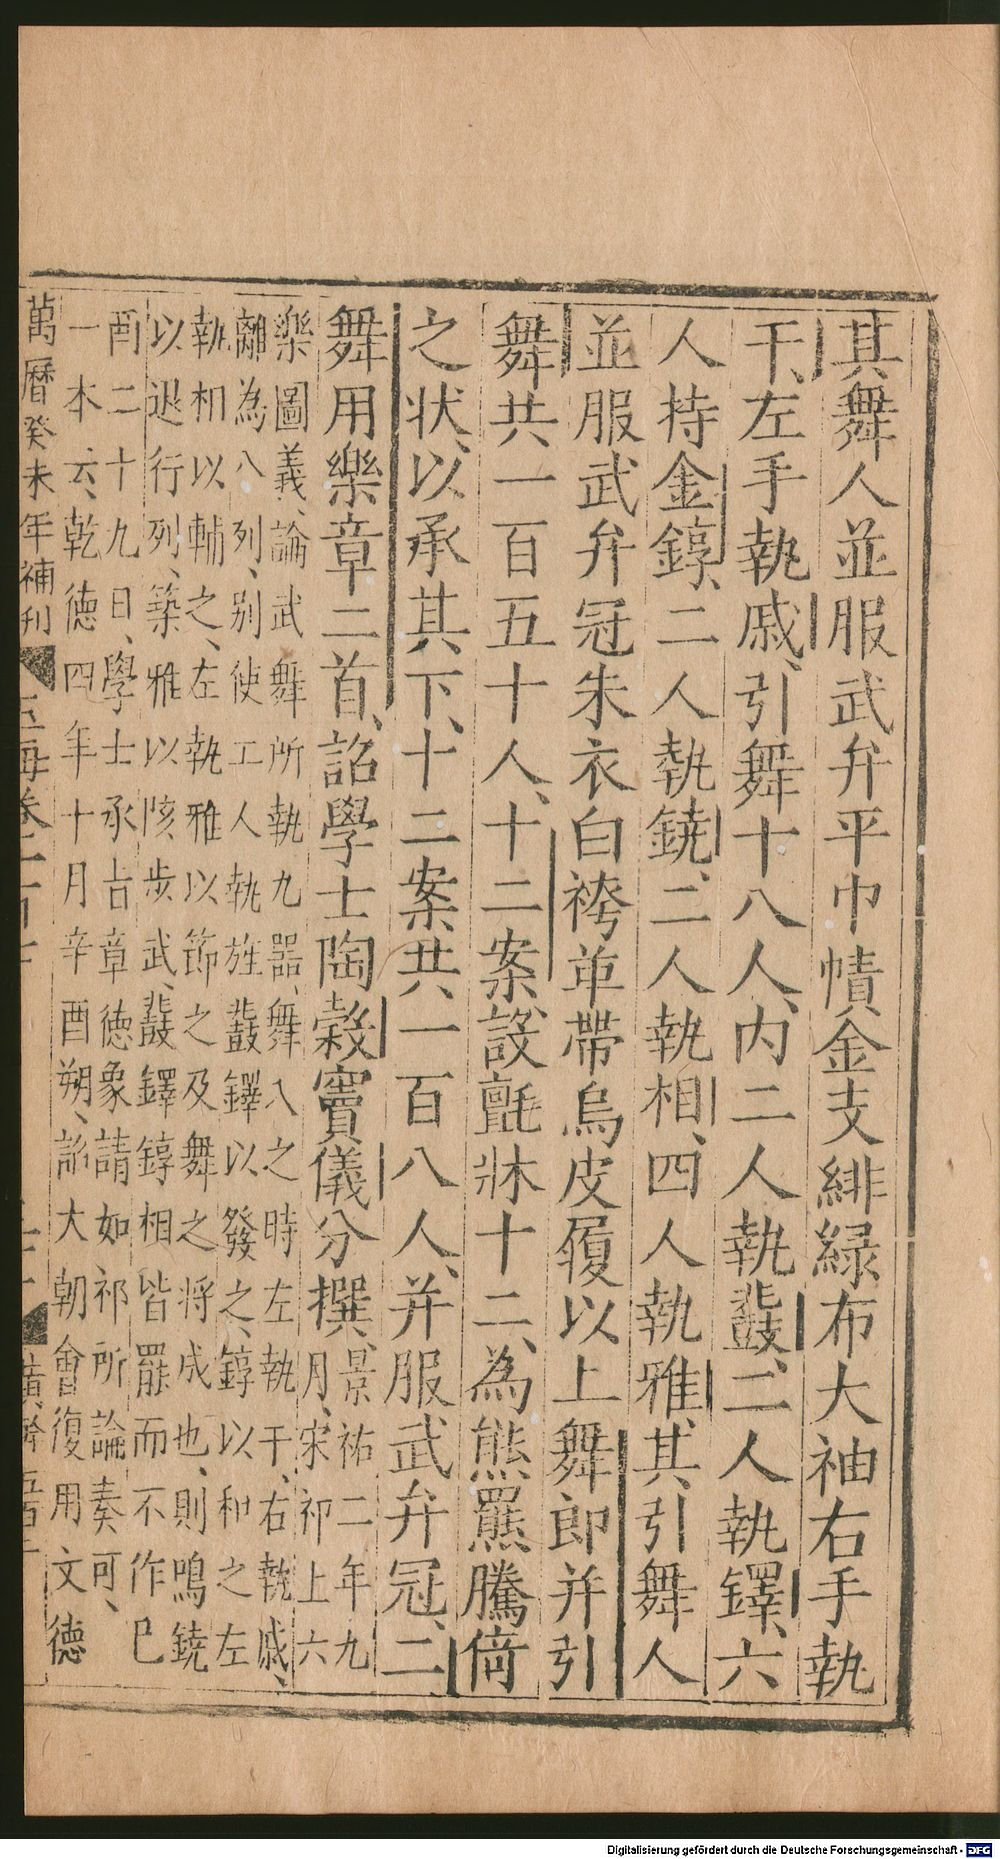 其舞人並服武弁平巾幘金支緋緑布大袖右手執
干、左手執戚、引舞十八人、内二人執鼗、二人執鐸、六
人持金錞、二人執鐃、二人執相、四人執雅、其引舞人
並服武弁冠朱衣白袴革帶烏皮履以上舞郎并引
舞共一百五十人、十二案、設氈牀十二、為熊羆騰倚
之状、以承其下、十二案共一百八人、并服武弁冠、二
舞用樂章二首、詔學士陶榖竇儀分撰、景祐二年九
月、宋祁上六
樂圖義、論武舞所執九器、舞入之時左執干、右執戚、
離為八列、别使工人執旌鼗鐸以發之、錞以和之左
執相以輔之、左執雅以節之及舞之將成也、則鳴鐃
以退行列、築雅以陔步武、鼗鐸錞相皆罷而不作巳
酉二十九日、學士承旨章徳象請如祁所論奏可、
一本云、乾徳四年十月辛酉朔、詔大朝會復用文徳
萬曆癸未年補刊 玉海卷一百七
Digitalisierung gefördert durch die Deutsche Forschungsgemeinschaft - DFG